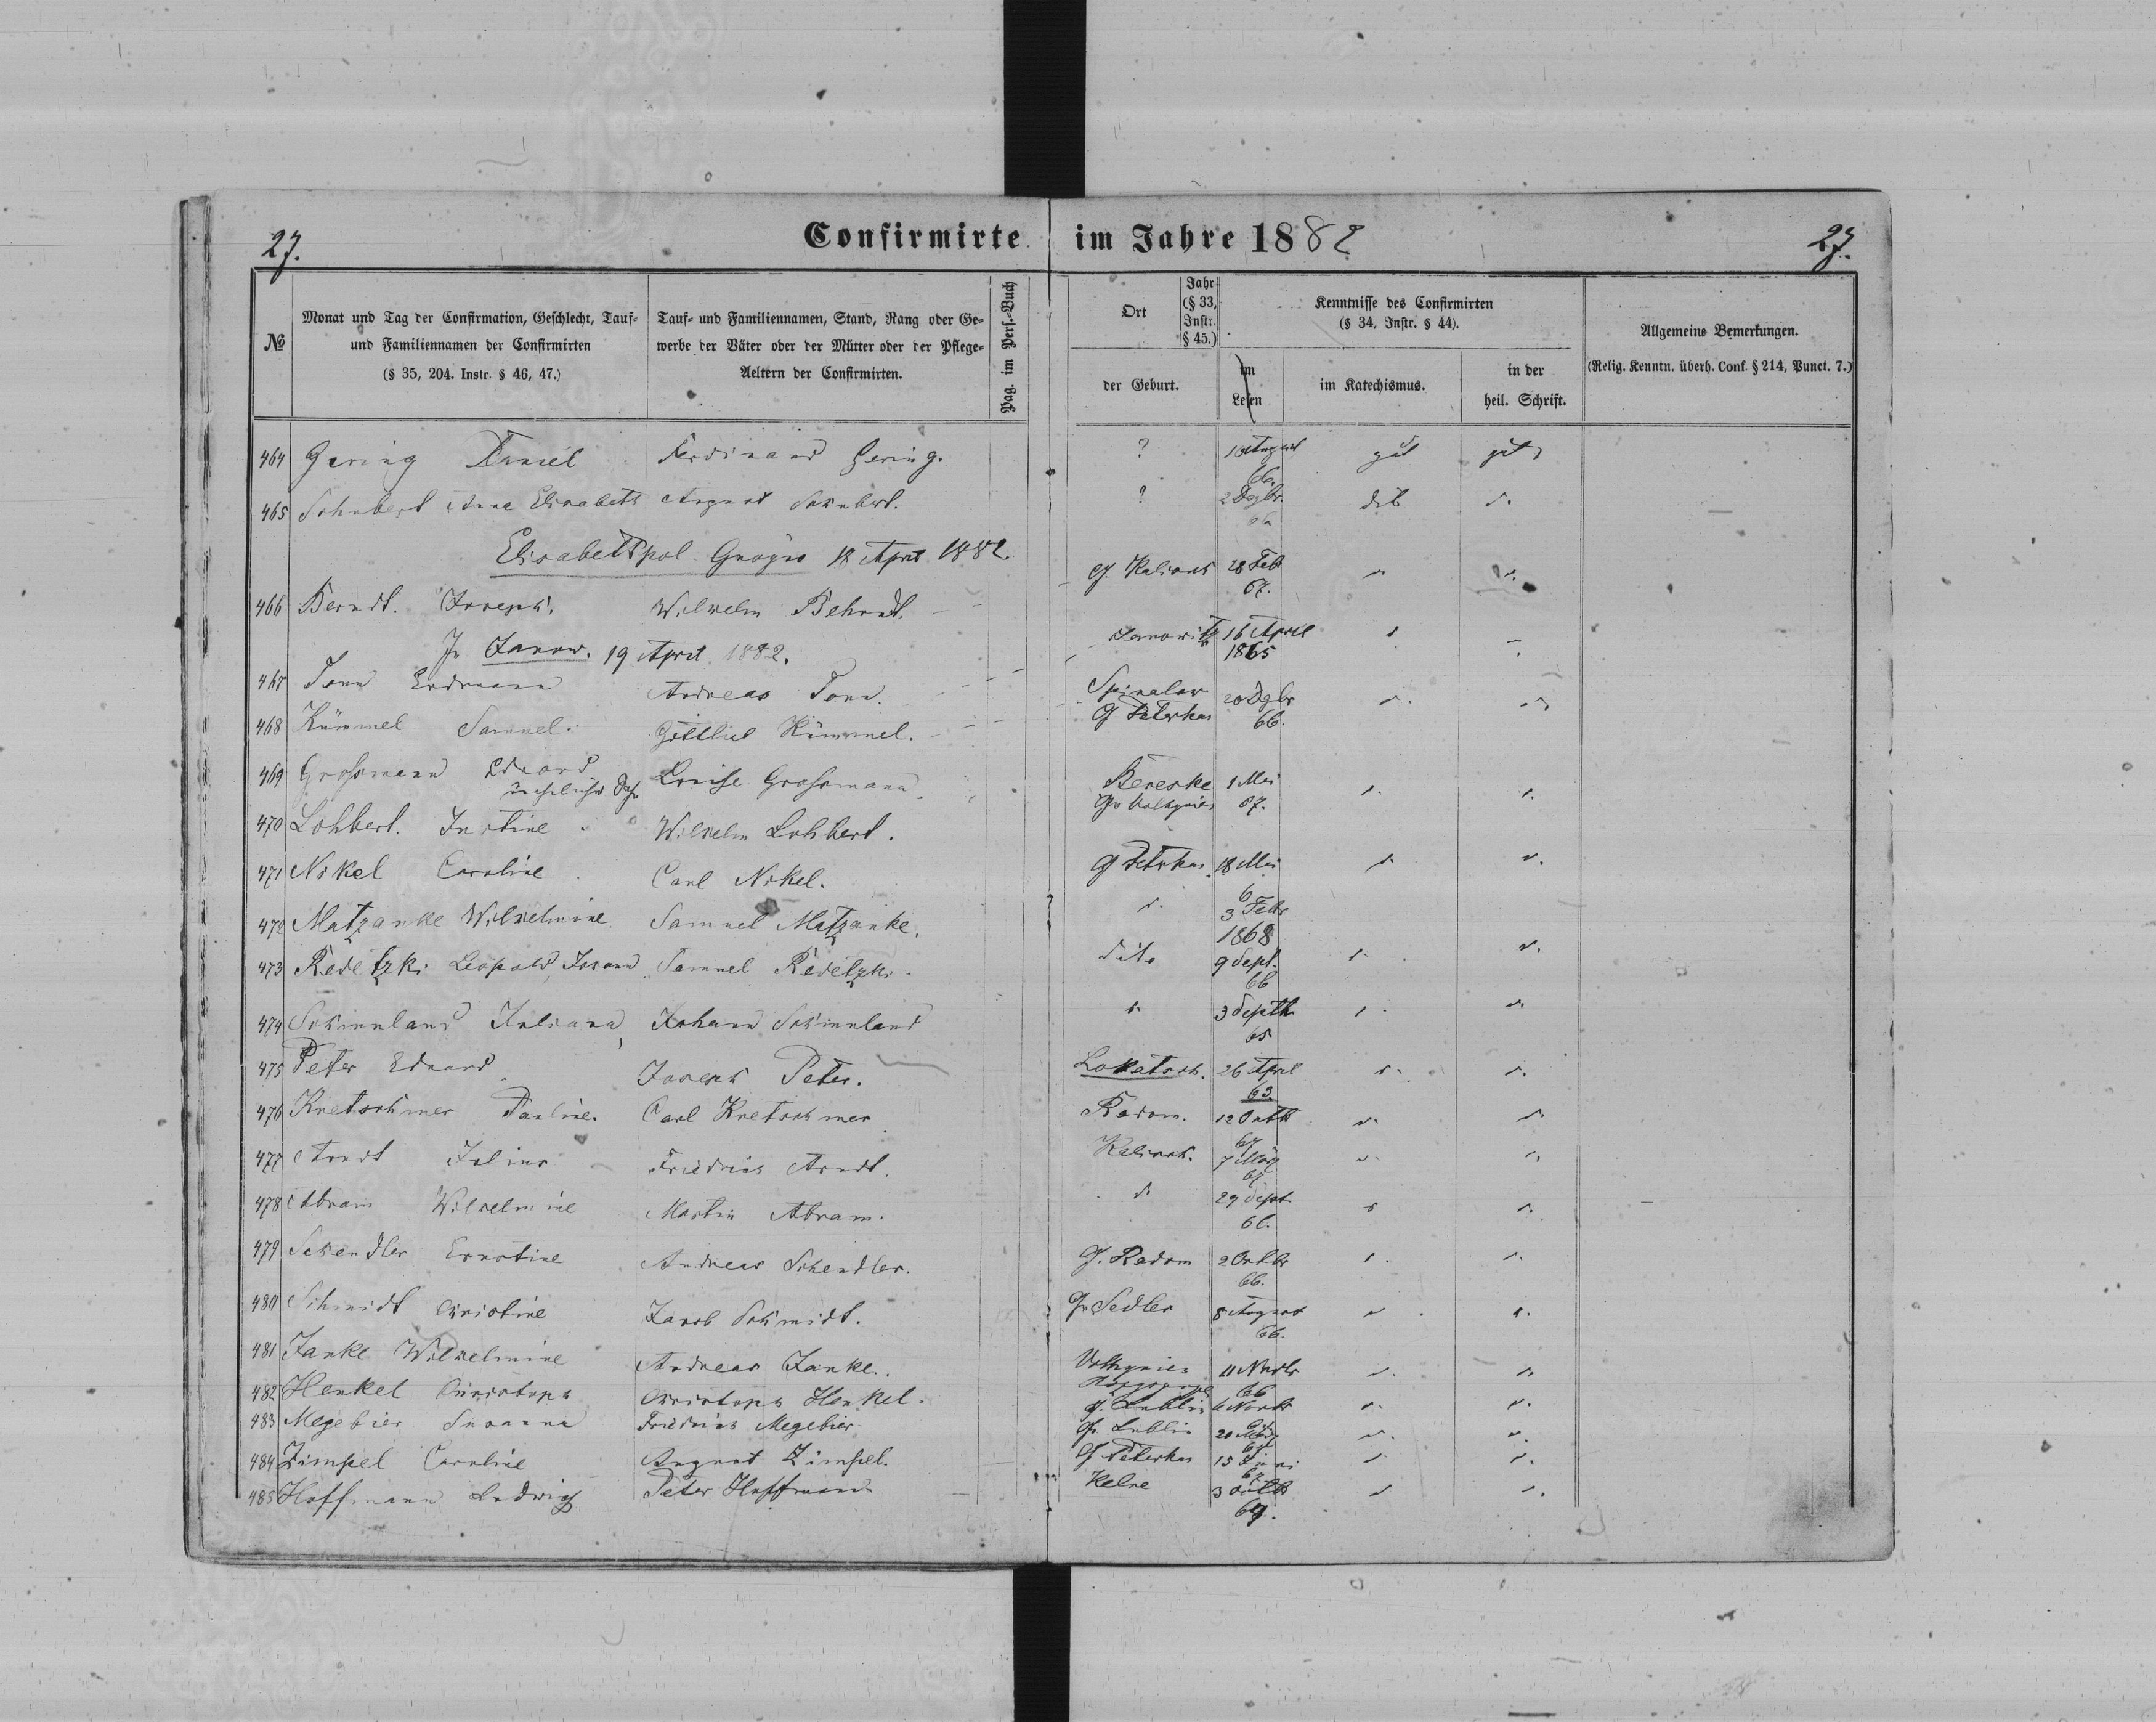 27. Confirmirte im Jahre 1882 27.
№
Monat und Tag der Confirmation, Geschlecht, Tauf-
und Familiennamen der Confirmirten
(§ 35, 204. Instr. § 46, 47.)
Tauf- und Familiennamen, Stand, Rang oder Ge-
werbe der Väter oder der Mütter oder der Pflege-
Aeltern der Confirmirten.
Pag. im Pers.-Buch
Ort
Jahr
(§ 33,
Instr.
§ 45.)
der Geburt.
Kenntnisse des Confirmirten
(§ 34, Instr. § 44).
im
Lesen
im Katechismus.
in der
heil. Schrift.
Allgemeine Bemerkungen.
(Relig. Kenntn. überh. Conf. § 214, Punct. 7.)
464 Gering Daniel Ferdinand Gering. ? August gut gut
66.
465 Schubert Anna Elisabeth August Schubert. ? 2 Dezbr. d.
66
Elisabethpol 18 April 1882.
466 Berndt. Joseph. Wilhelm Behrndt. G. Kalisch 28 Feb
67.
In Janow. 19 April 1882.
467 Erdmann Andreas Janowitz 16 April
1865
468 Kümmel Samuel. Gottlieb Kümmel. G Peterkau 20 Dzbr
66.
469 Grossmann Eduard Louise Grossmann. Bereske 1 Mai
Gv Volhynien 67.
470 Lohbert. Justine Wilhelm Lohbert. G Peterkau 18 Mai
6
471 Nikel Caroline Carl Nikel. d. 3 Febr
1868
472 Matzanke Wilhelmine Samuel Matzanke. dito 9 Sept.
66
473 Redetzki Leopold, Johann Samuel Redetzki. d. 3 Septb
65
474 Schinnland Juliana Johann Schinnland Lokatsch. 26 April
63.
475 Peter Eduard Joseph Peter. Radom. 12 Octb
67
476 Kretschmer Pauline. Carl Kretschmer Kalisch. 7 März
67
477 Arndt Julius Friedrich Arndt. d. 29 Sept
478 Abram Wilhelmine Martin Abram. G. Radom 2 Octbr
66.
479 Schendler Ernstine Andreas Schendler. Gv Sedler 8 August
66.
480 Schmidt Christine Jacob Schmidt. Volhynien 11 Novbr
66
481 Janke Wilhelmine Andreas Janke. G. Lublin
482 Henkel Christoph Christoph Henkel. Gv Lublin 20 März
483 Megebier Susanna Friedrich Megebier G Peterkau 15 Juni
484 Zimpel Caroline August Zimpel. Kelne 3 Octb
69.
485 Hoffmann Ludwig Peter Hoffmann